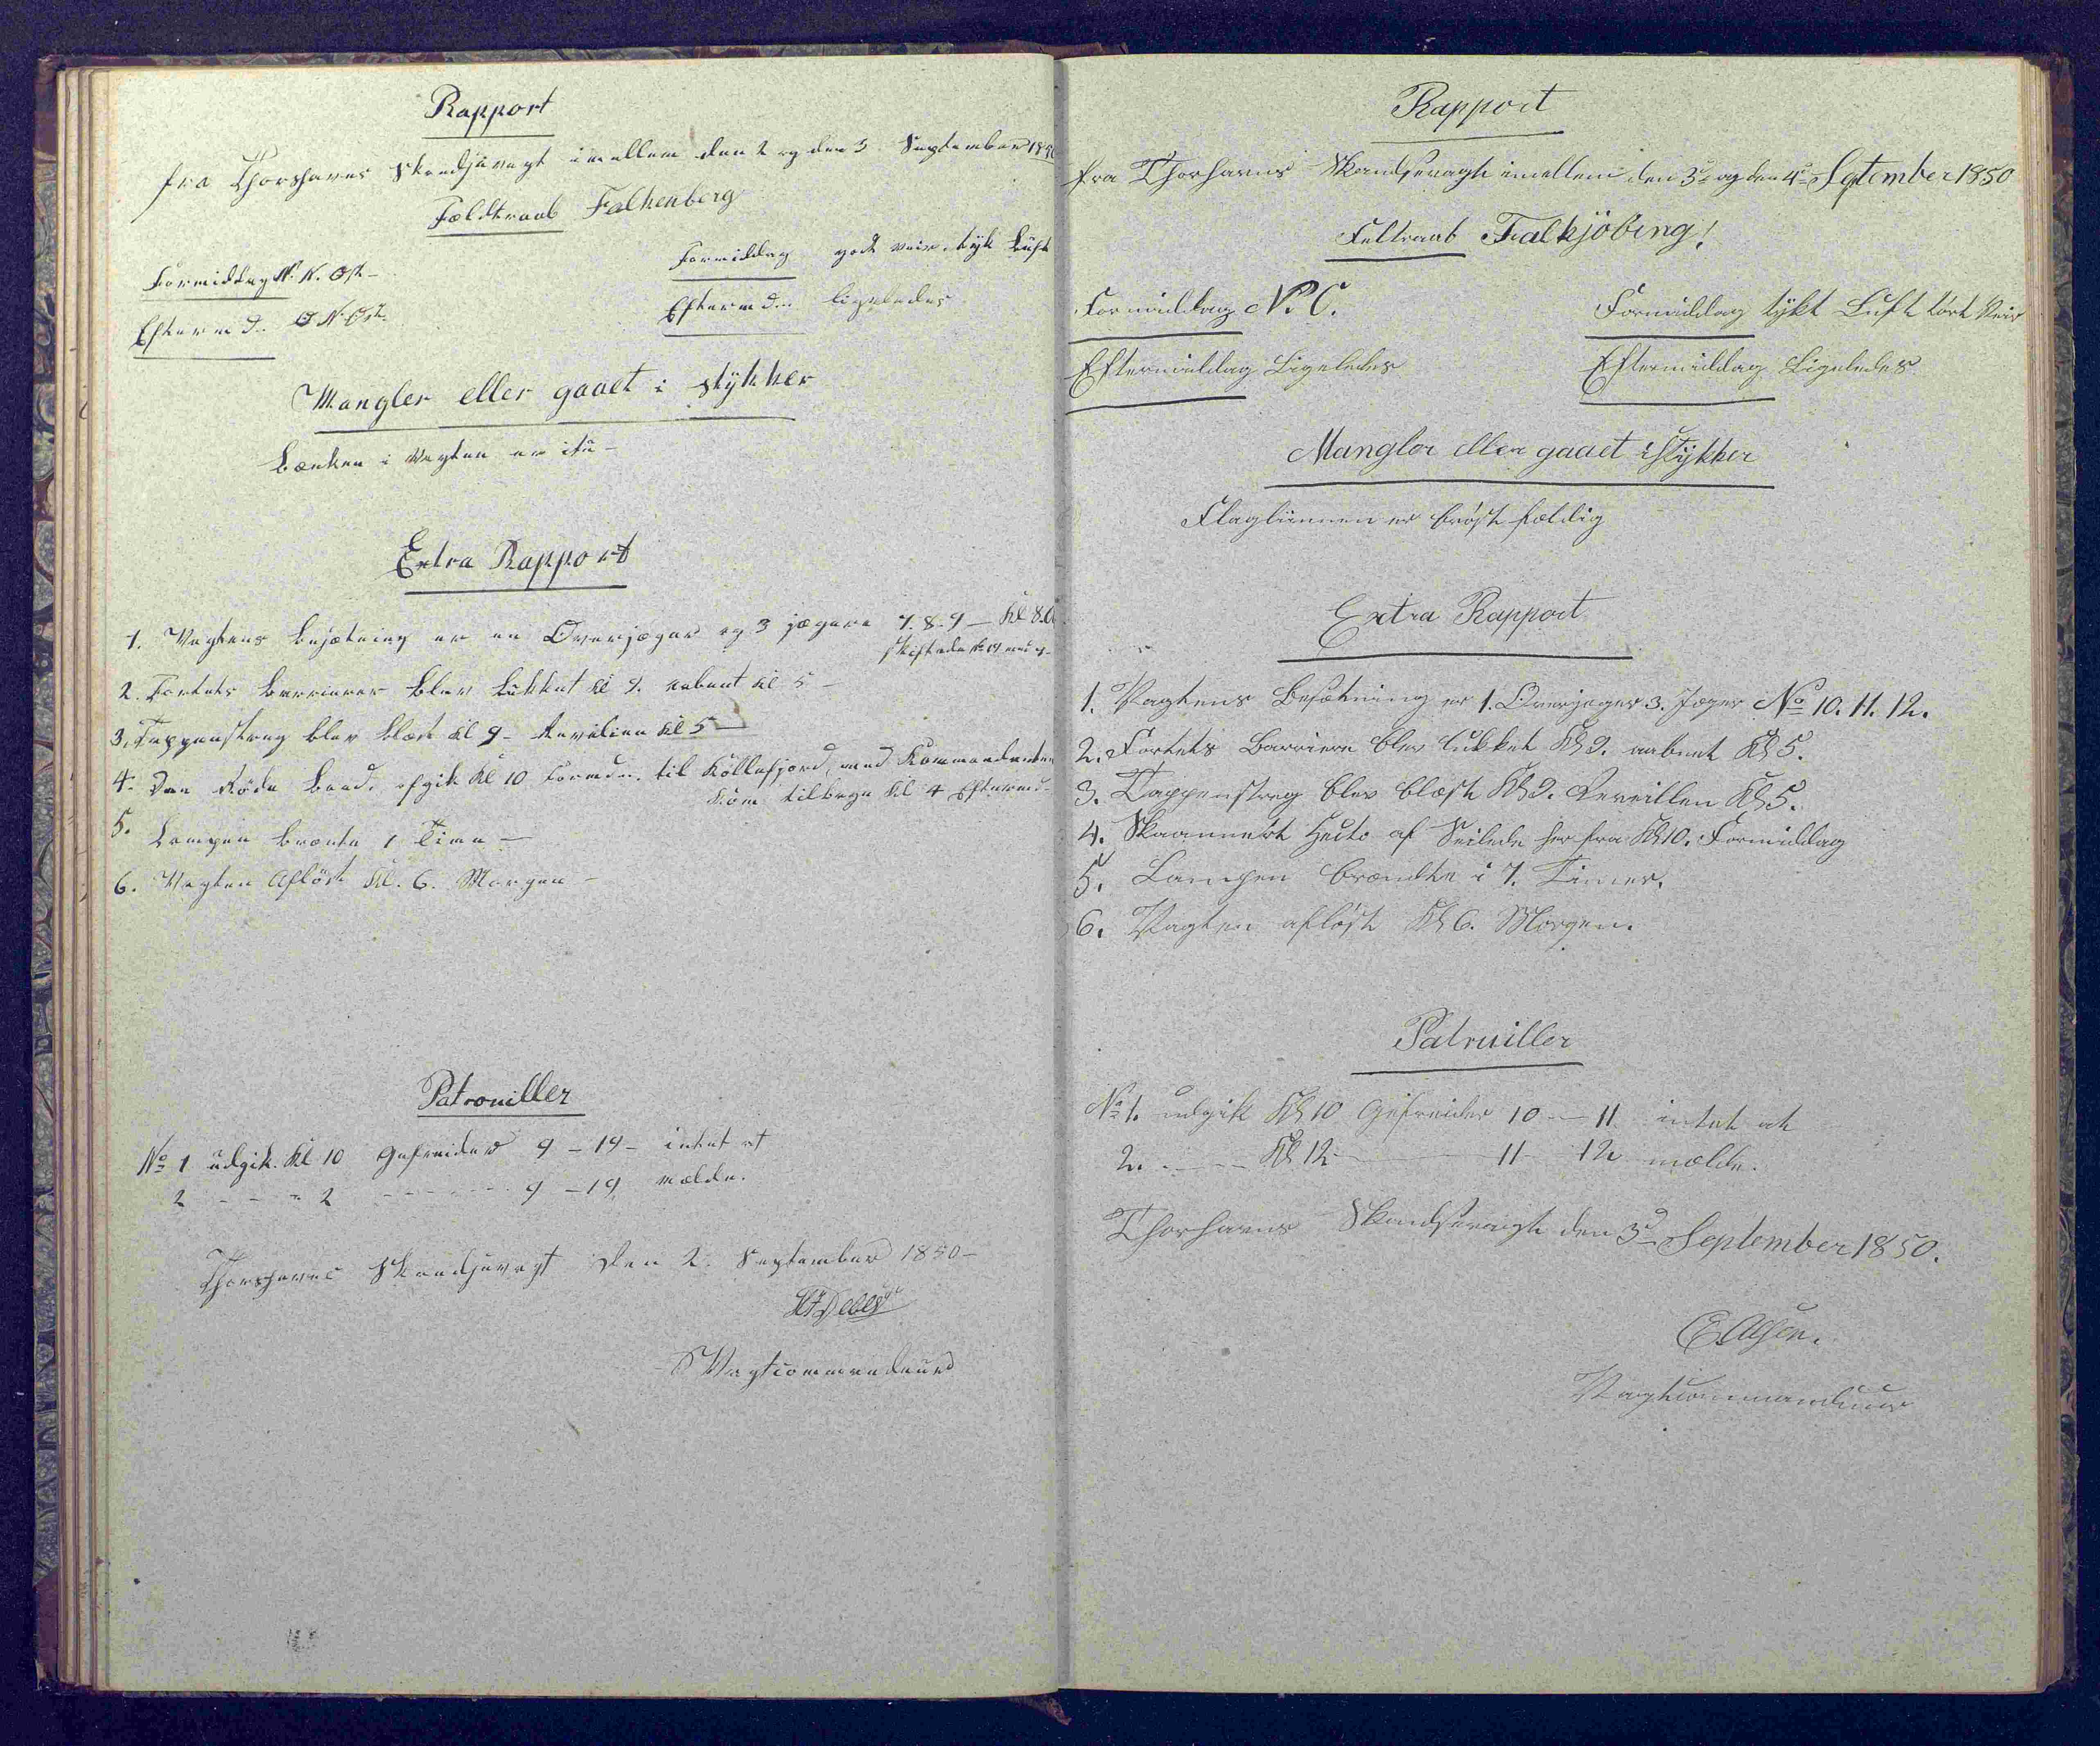 Rapport
fra Thorshavns Skandsevagt imellem den 2 og den 3 September 1850
Fældtraab Falkenberg
Formiddag N. N. Ost - Formiddag godt veir, tyk Luft
Eftermd. O N Ost. Eftermd. ligeledes
Mangler eller gaaet i stykker
Bænken i Vagten er itu -
Extra Rapport
1. Vagtens besætning er en Overjæger og 3 jægere 7. 8. 9 - Kl 8.
skiftede No 19 med
2. Fortets Barrierer blev lukket kl 9. aabent kl 5 -
3. Tappenstreg blev blæst kl 9 - Revelien kl 5 -
4. Den Røde Baad, afgik Kl 10 Formd. til Kollefjord, med Kommandanten
Kom tilbage kl 4 Eftermd.
5. Lampen brænte 1 Time -
6. Vagten Afløst Kl. 6. Morgen -
Patrouiller
No 1 udgik. Kl 10 Gefreider 9 - 19 - intet at
2 - - - 2 - - - - - - 9 - 19, melde.
Thorshavns Skandsevagt Den 2. September 1850 -
Debes
Vagtcommandeur
Rapport
fra Thorhavns Skandsevagt imellem den 3de og den 4de Sptember 1850
Feltraab Falkjöbing!
Formiddag N. O. Formiddag tykt Luft tørt Veir
Eftermiddag Ligeledes Eftermiddag Ligeledes
Mangler eller gaaet i Stykker
Flaglinnen er brøstfældig
Extra Rapport
1. Vagtens Besætning er 1. Overjæger 3. Jæger No 10. 11. 12.
2. Fortets Barriere blev lukket Kl 9. aabent Kl 5.
3. Tappenstreg blev blæst Kl 9. Reveillen Kl 5.
4. Skaannert af Seilede her fra Kl 10. Formiddag
5. Lampen brændte i 7. Timer.
6. Vagten afløst Kl 6. Morgen.
Patruiller
No 1. udgik Kl 10 Gefreider 10 - 11 intet at
2. - - - Kl 12 - - - 11 - 12 mælde.
Thorhavns Skandsevagt den 3de September 1850.
Vagtcommandeur